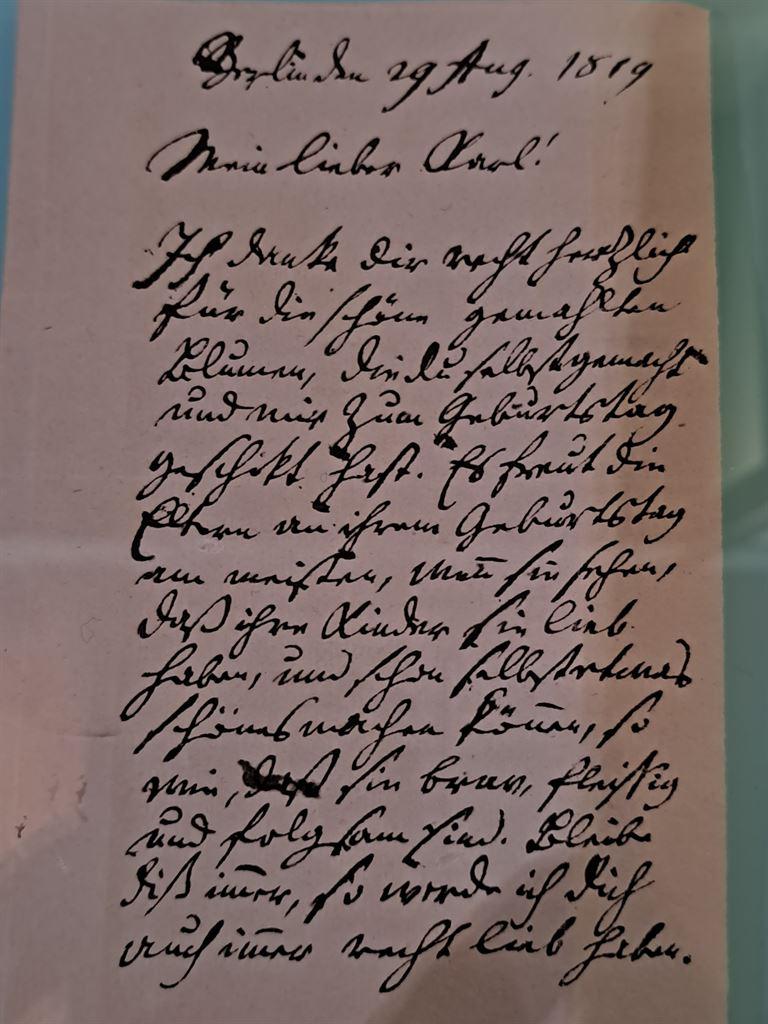 Berlin den 29 Aug. 1819
Mein lieber Karl!
Ich danke dir recht hertzlich
für die schöne gemahlten
Blumen, die du selbst gemacht
und mir zum Geburtstag
geschikt hast. Es freut die
Eltern an ihrem Geburtstag
am meisten, wen̄ sie sehen,
daß ihre Kinder sie lieb
haben, und schon selbst etwas
schönes machen kön̄en, so
wie, daß sie brav, fleissig
und folgsam sind. Bleibe
diß im̄er, so werde ich dich
auch im̄er recht lieb haben.